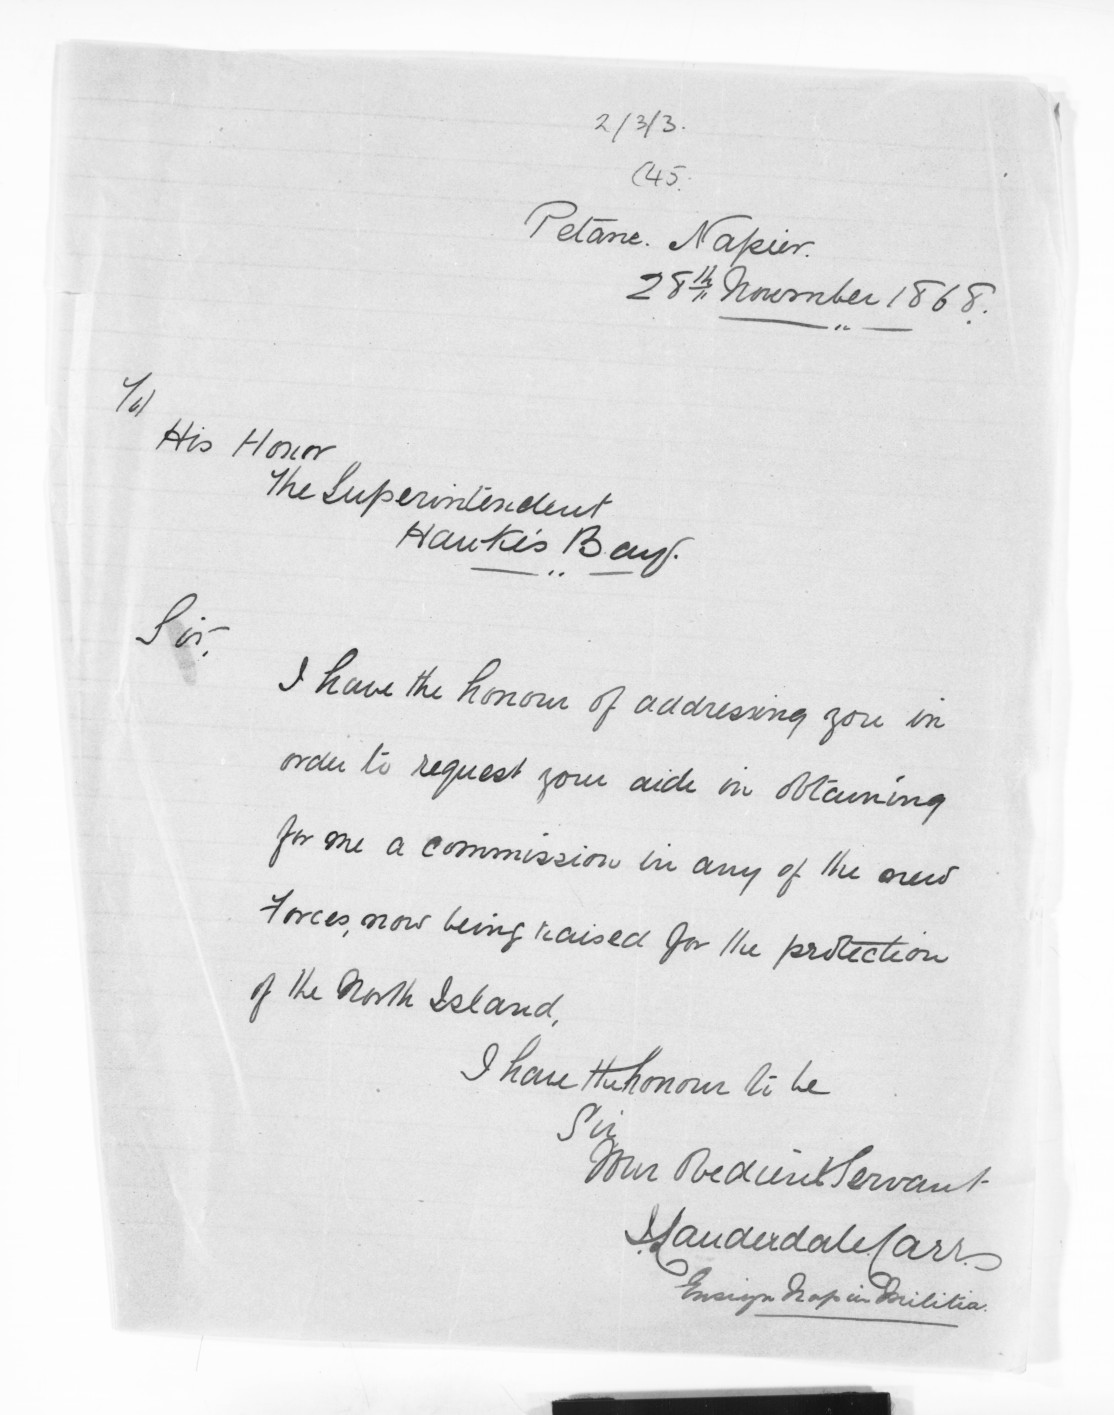 2/3/3.
(45.
Petane. Napier.
28th November 1868.
To/
His Honor
The Superintendent
Hawke's Bay.
Sir,
I have the honour of addressing you in
order to request your aide in obtaining
for me a commission in any of the new
Forces, now being raised for the protection
of the North Island,
I have the honour to be
Sir
Your Obedient Servant
J. Lauderdale Carr.
Ensign Napier Militia.